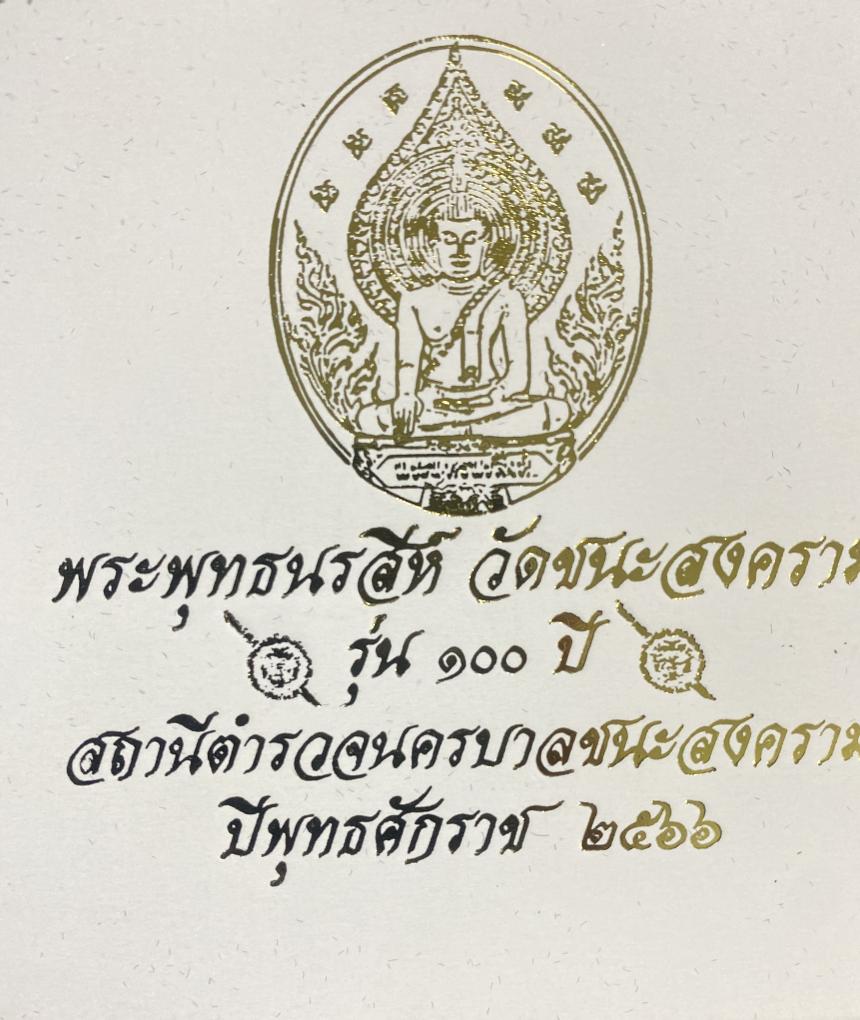 พระพุทธนรสีห์ วัดชนะสงคราม
รุ่น ๑๐๐ ปี
สถานีตำรวจนครบาลชนะสงคราม
ปีพุทธศักราช ๒๕๖๖